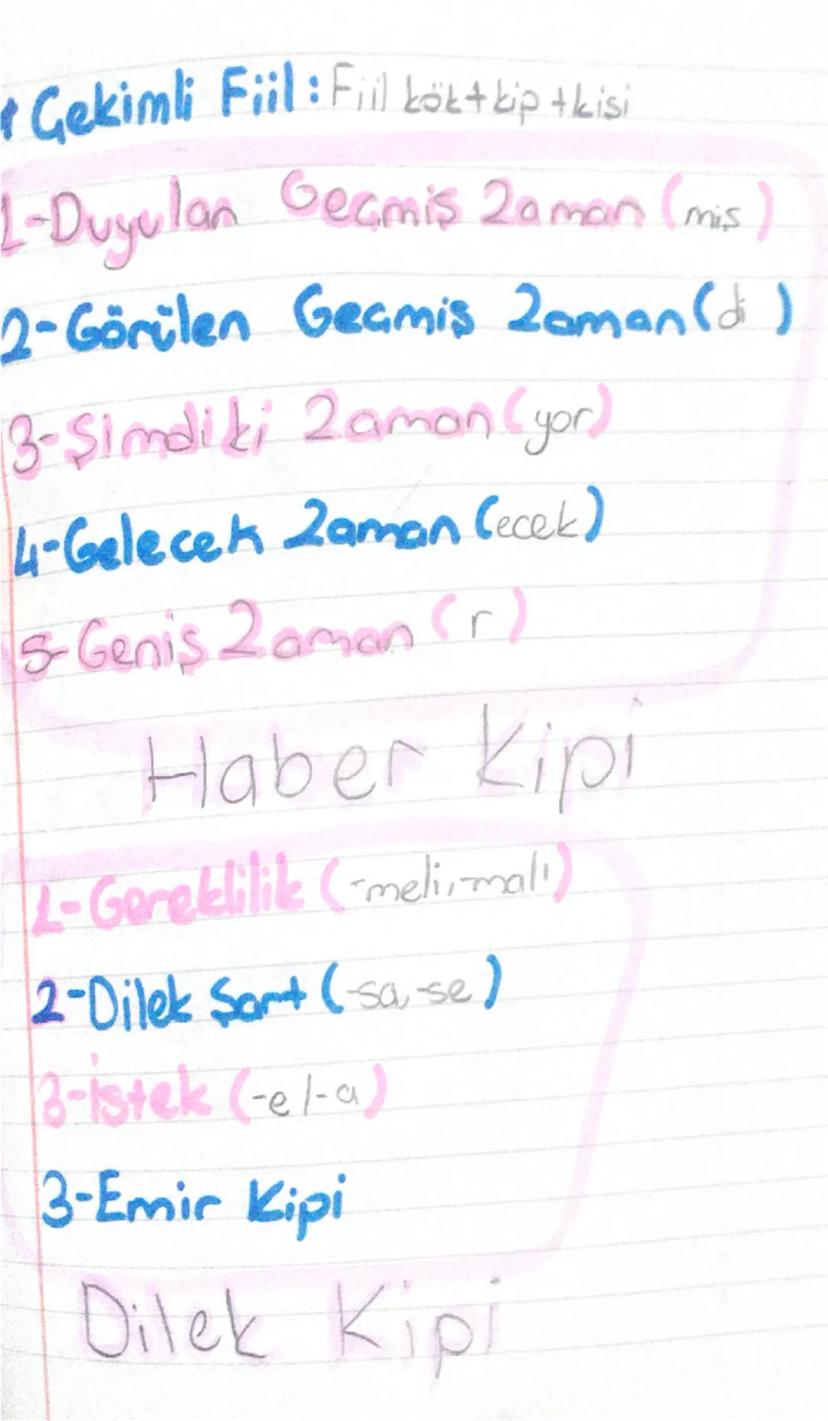 Çekimli Fiil: Fiil kök+kip+kisi
1-Duyulan Geçmiş Zaman (miş)
2-Görülen Geçmiş Zaman (di)
3-Şimdiki Zaman (yor)
4-Gelecek Zaman (ecek)
5-Geniş Zaman (r)
Haber Kipi
1-Gereklilik (-meli,-malı)
2-Dilek Şart (-sa,-se)
3-İstek (-e/-a)
3-Emir Kipi
Dilek Kipi